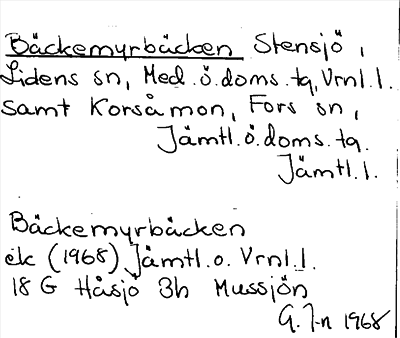 Bäckemyrbäcken Stensjö,
Lidens sn, Med.ö.doms.tg, Vrnl.l.
samt Korsåmon, Fors sn,
Jämtl.ö.doms.tg.
Jämtl.l.
Bäckemyrbäcken
ek (1968) Jämtl.o. Vrnl.l.
18 G Håsjö 3h Mussjön
G. J-n 1968